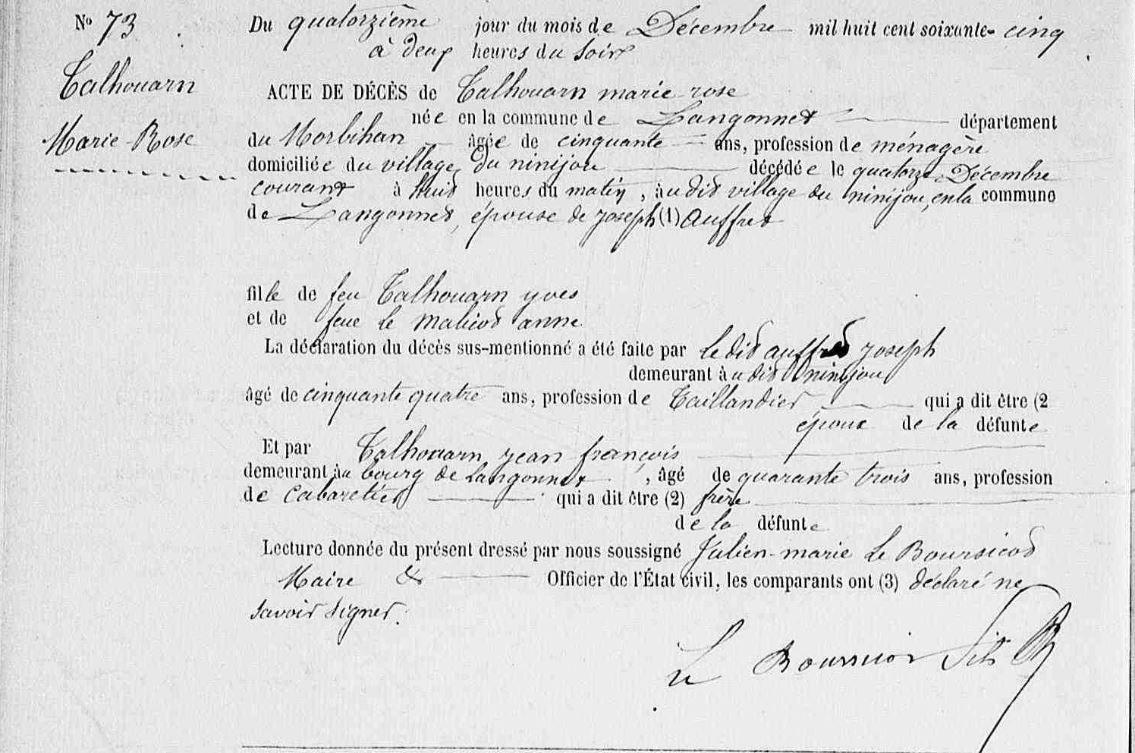 N° 73
Du quatorzième jour du mois de Décembre mil huit cent soixante-cinq
à deux heures du soir
Talhouarn
Marie Rose
ACTE DE DÉCÈS de Talhouarn marie rose
née en la commune de Langonnet département
du Morbihan âgée de cinquante ans, profession de ménagère
domiciliée du village du ninijou décédée le quatorze Décembre
courant à huit heures du matin, au dit village du ninijou, en la commune
de Langonnet, épouse de joseph (1) auffret
fille de feu Talhouarn yves
et de feue le malicot anne
La déclaration du décès sus-mentionné a été faite par le dit auffret joseph
demeurant au dit ninijou
âgé de cinquante quatre ans, profession de Taillandier qui a dit être (2
époux de la défunte
Et par Talhouarn, jean françois
demeurant au bourg de Langonnet, âgé de quarante trois ans, profession
de cabaretier qui a dit être (2) frère
de la défunte
Lecture donnée du présent dressé par nous soussigné Julien-marie Le Boursicot
Maire & Officier de l'État civil, les comparants ont (3) déclaré ne
savoir signer.
Le Boursicot fils